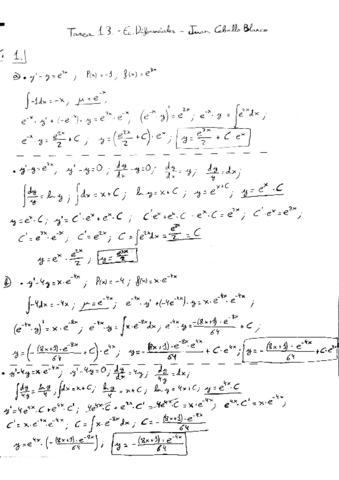 Tarea 1.3 - Ec. Diferenciales - Juan Ceballo Blanco
1.
a) • y' - y = e^{3x} ; P(x) = -1 ; f(x) = e^{3x}
∫-1dx = -x ; μ = e^{-x}
e^{-x}·y' + (-e^{-x})·y = e^{3x}·e^{-x} ; (e^{-x}·y)' = e^{2x} ; e^{-x}·y = ∫e^{2x}dx ;
e^{-x}·y = e^{2x}/2 + C ; y = (e^{2x}/2 + C)·e^{x} ; y = e^{3x}/2 + C·e^{x}
• y' - y = e^{3x} ; y' - y = 0 ; dy/dx - y = 0 ; dy/dx = y ; dy/y = dx ;
∫dy/y = ln y ; ∫dx = x + C ; ln y = x + C ; y = e^{x+C} ; y = e^{x}·C
y = e^{x}·C ; y' = C'·e^{x} + e^{x}·C ; C'e^{x} + e^{x}·C - e^{x}·C = e^{3x} ; C'·e^{x} = e^{3x} ;
C' = e^{3x}·e^{-x} ; C' = e^{2x} ; C = ∫e^{2x}dx = e^{2x}/2 = C
y = e^{x}·e^{2x}/2 ; y = e^{3x}/2
b) • y' - 4y = x·e^{-4x} ; P(x) = -4 ; f(x) = x·e^{-4x}
∫-4dx = -4x ; μ = e^{-4x} ; e^{-4x}·y' + (-4e^{-4x})·y = x·e^{-4x}·e^{-4x} ;
(e^{-4x}·y)' = x·e^{-8x} ; e^{-4x}·y = ∫x·e^{-8x}dx ; e^{-4x}·y = -(8x+1)·e^{-8x}/64 + C ;
y = (-(8x+1)·e^{-8x}/64 + C)·e^{4x} ; y = -(8x+1)·e^{-8x}·e^{4x}/64 + C·e^{4x} ; y = -(8x+1)·e^{-4x}/64 + C·e^{4x}
• y' - 4y = x·e^{-4x} ; y' - 4y = 0 ; dy/dx = 4y ; dy/4y = dx ;
∫dy/4y = ln y/4 ; ∫dx = x + C ; ln y/4 = x + C ; ln y = 4x + C ; y = e^{4x}·C
y' = 4e^{4x}·C + e^{4x}·C' ; 4e^{4x}·C + e^{4x}·C' - 4e^{4x}·C = x·e^{-4x} ; e^{4x}·C' = x·e^{-4x}
C' = x·e^{-4x}·e^{-4x} ; C = ∫x·e^{-8x}dx ; C = -(8x+1)·e^{-8x}/64
y = e^{4x}·(-(8x+1)·e^{-8x}/64) ; y = -(8x+1)·e^{-4x}/64